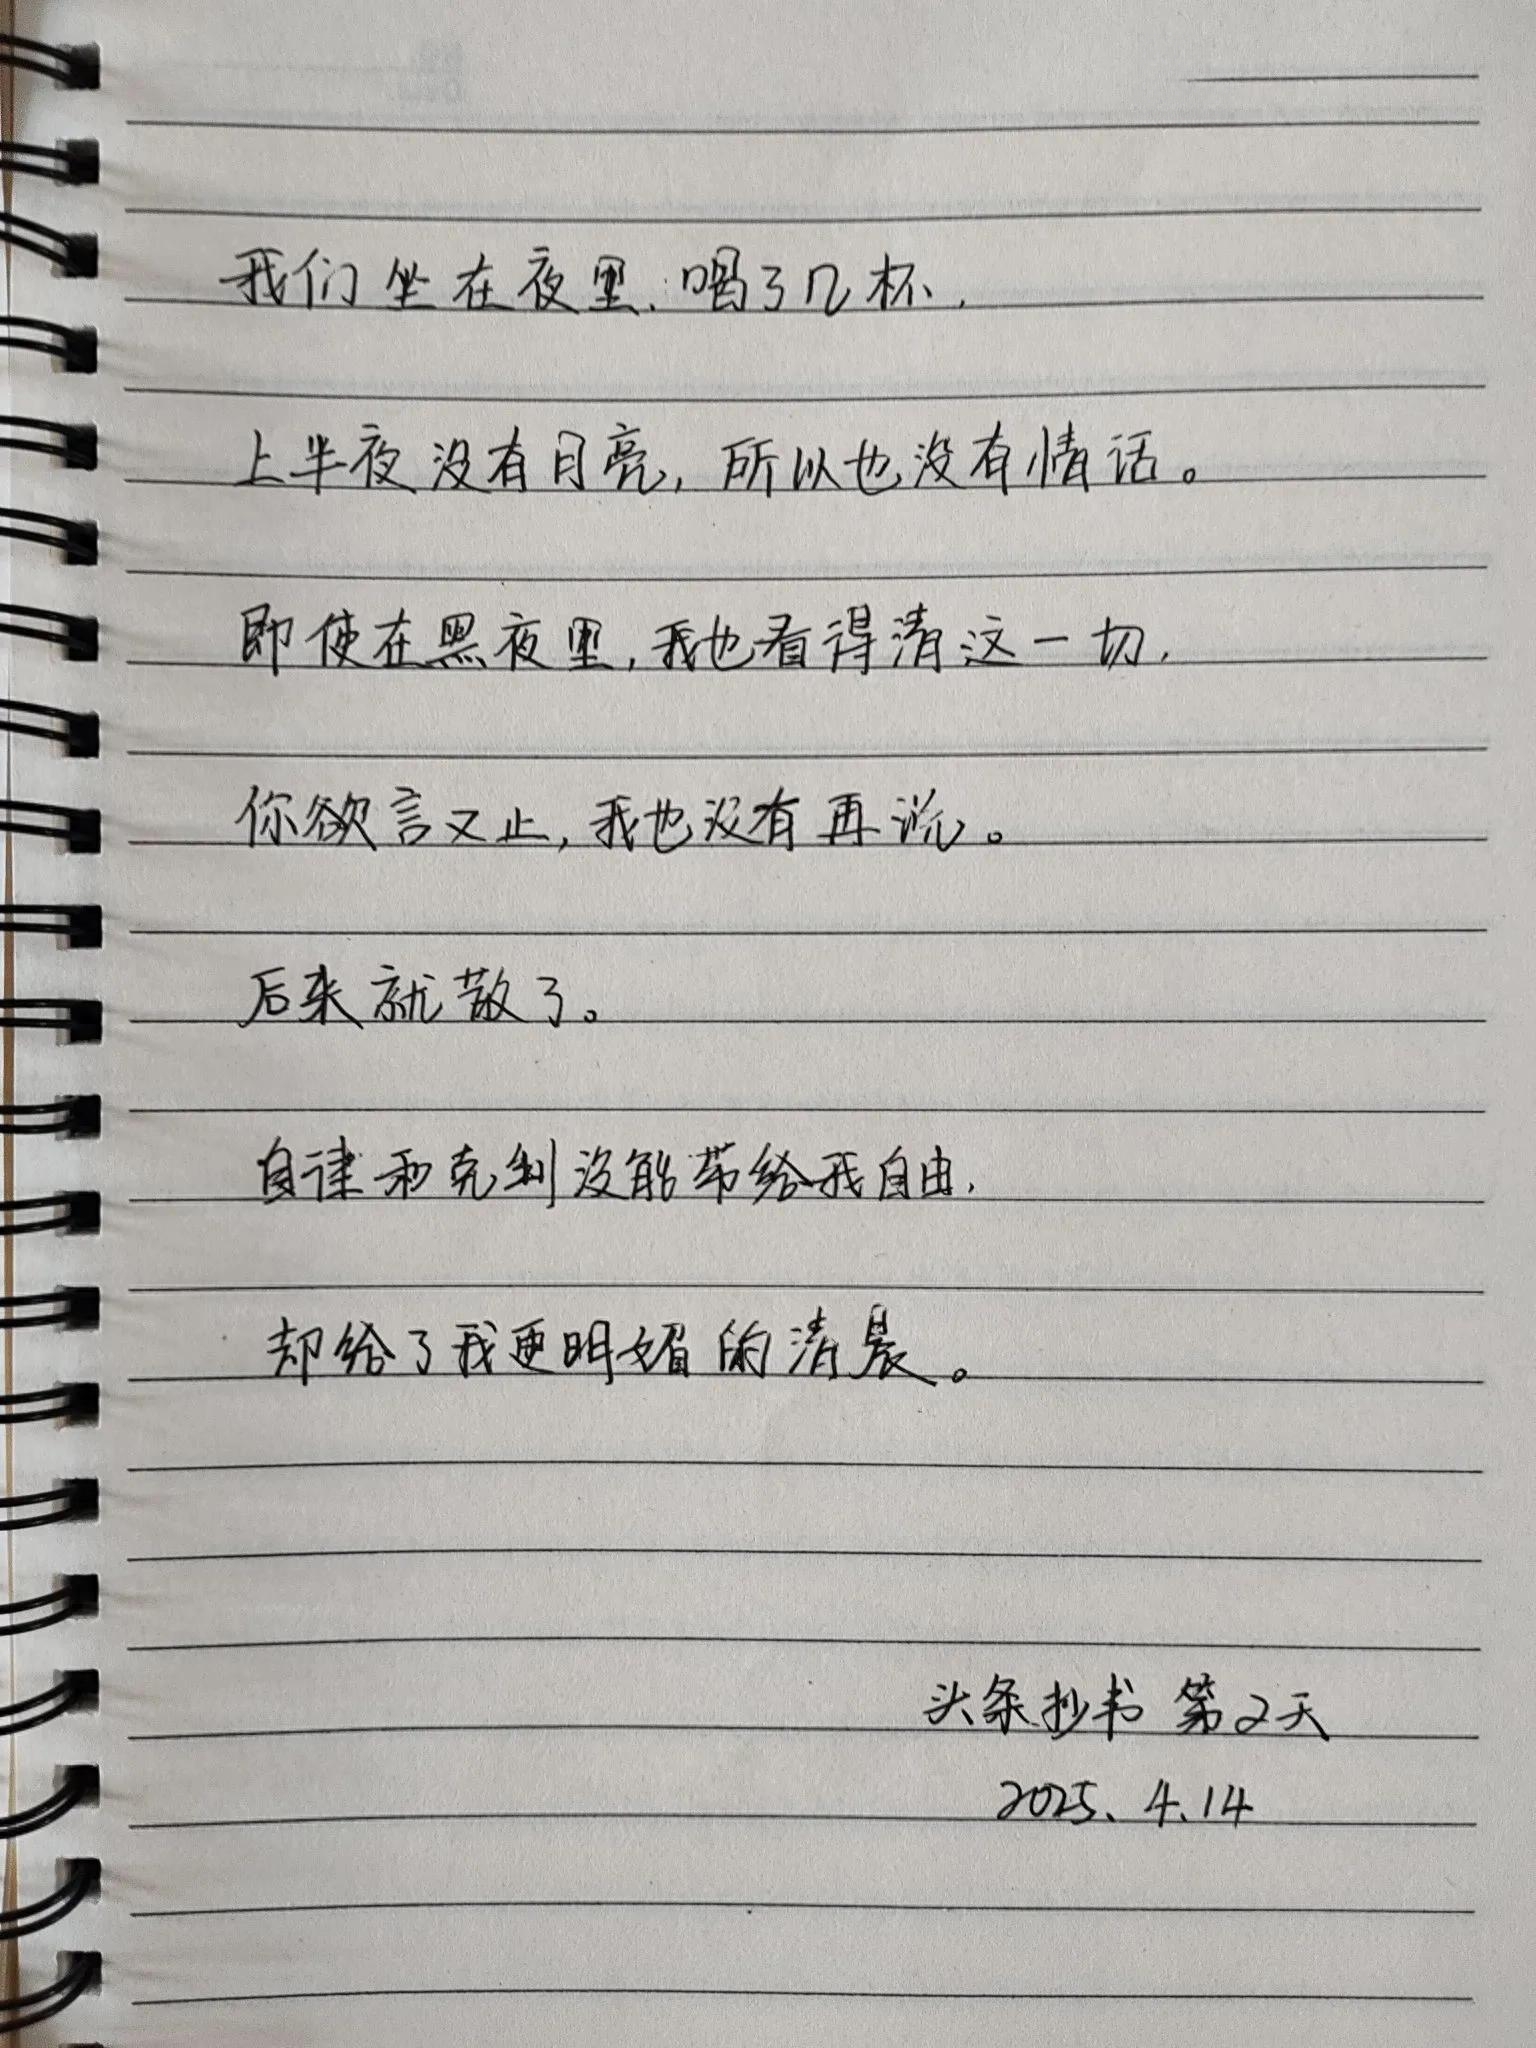 我们坐在夜里、喝了几杯,
上半夜没有月亮,所以也没有情话。
即使在黑夜里,我也看得清这一切,
你欲言又止,我也没有再说。
后来就散了。
自律和克制没能带给我自由,
却给了我更明媚的清晨。
头条抄书 第2天
2025.4.14